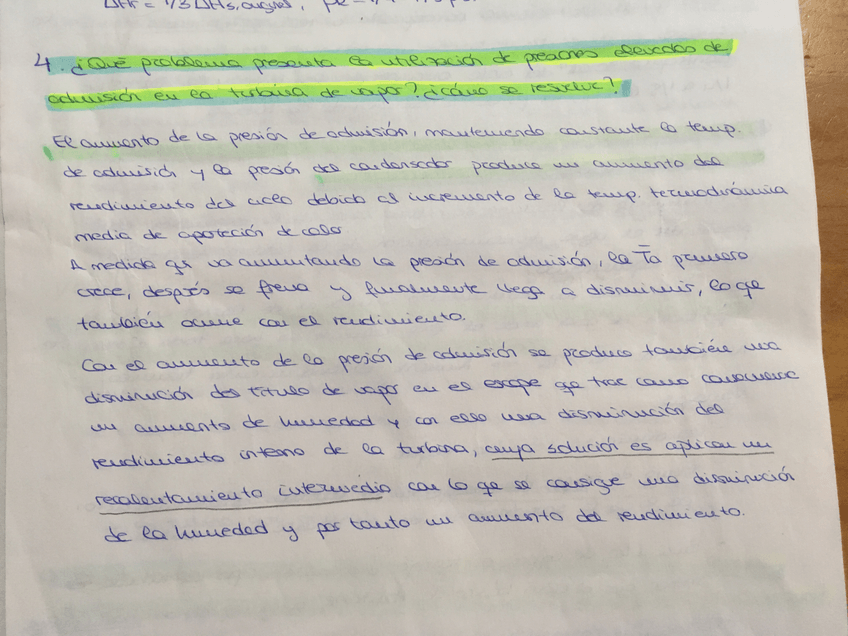 ΔHr = 1/3 ΔHs,
4. ¿Qué problema presenta la utilización de presiones elevadas de
admisión en la turbina de vapor? ¿cómo se resuelve?
El aumento de la presión de admisión, manteniendo constante la temp.
de admisión y la presión del condensador produce un aumento del
rendimiento del ciclo debido al incremento de la temp. termodinámica
media de aportación de calor
A medida qe va aumentando la presión de admisión, la T̄a primero
crece, después se frena y finalmente llega a disminuir, lo qe
también ocurre con el rendimiento.
Con el aumento de la presión de admisión se produce también una
disminución del título de vapor en el escape qe trae como consecuencia
un aumento de humedad y con ello una disminución del
rendimiento interno de la turbina, cuya solución es aplicar un
recalentamiento intermedio con lo qe se consigue una disminución
de la humedad y por tanto un aumento del rendimiento.